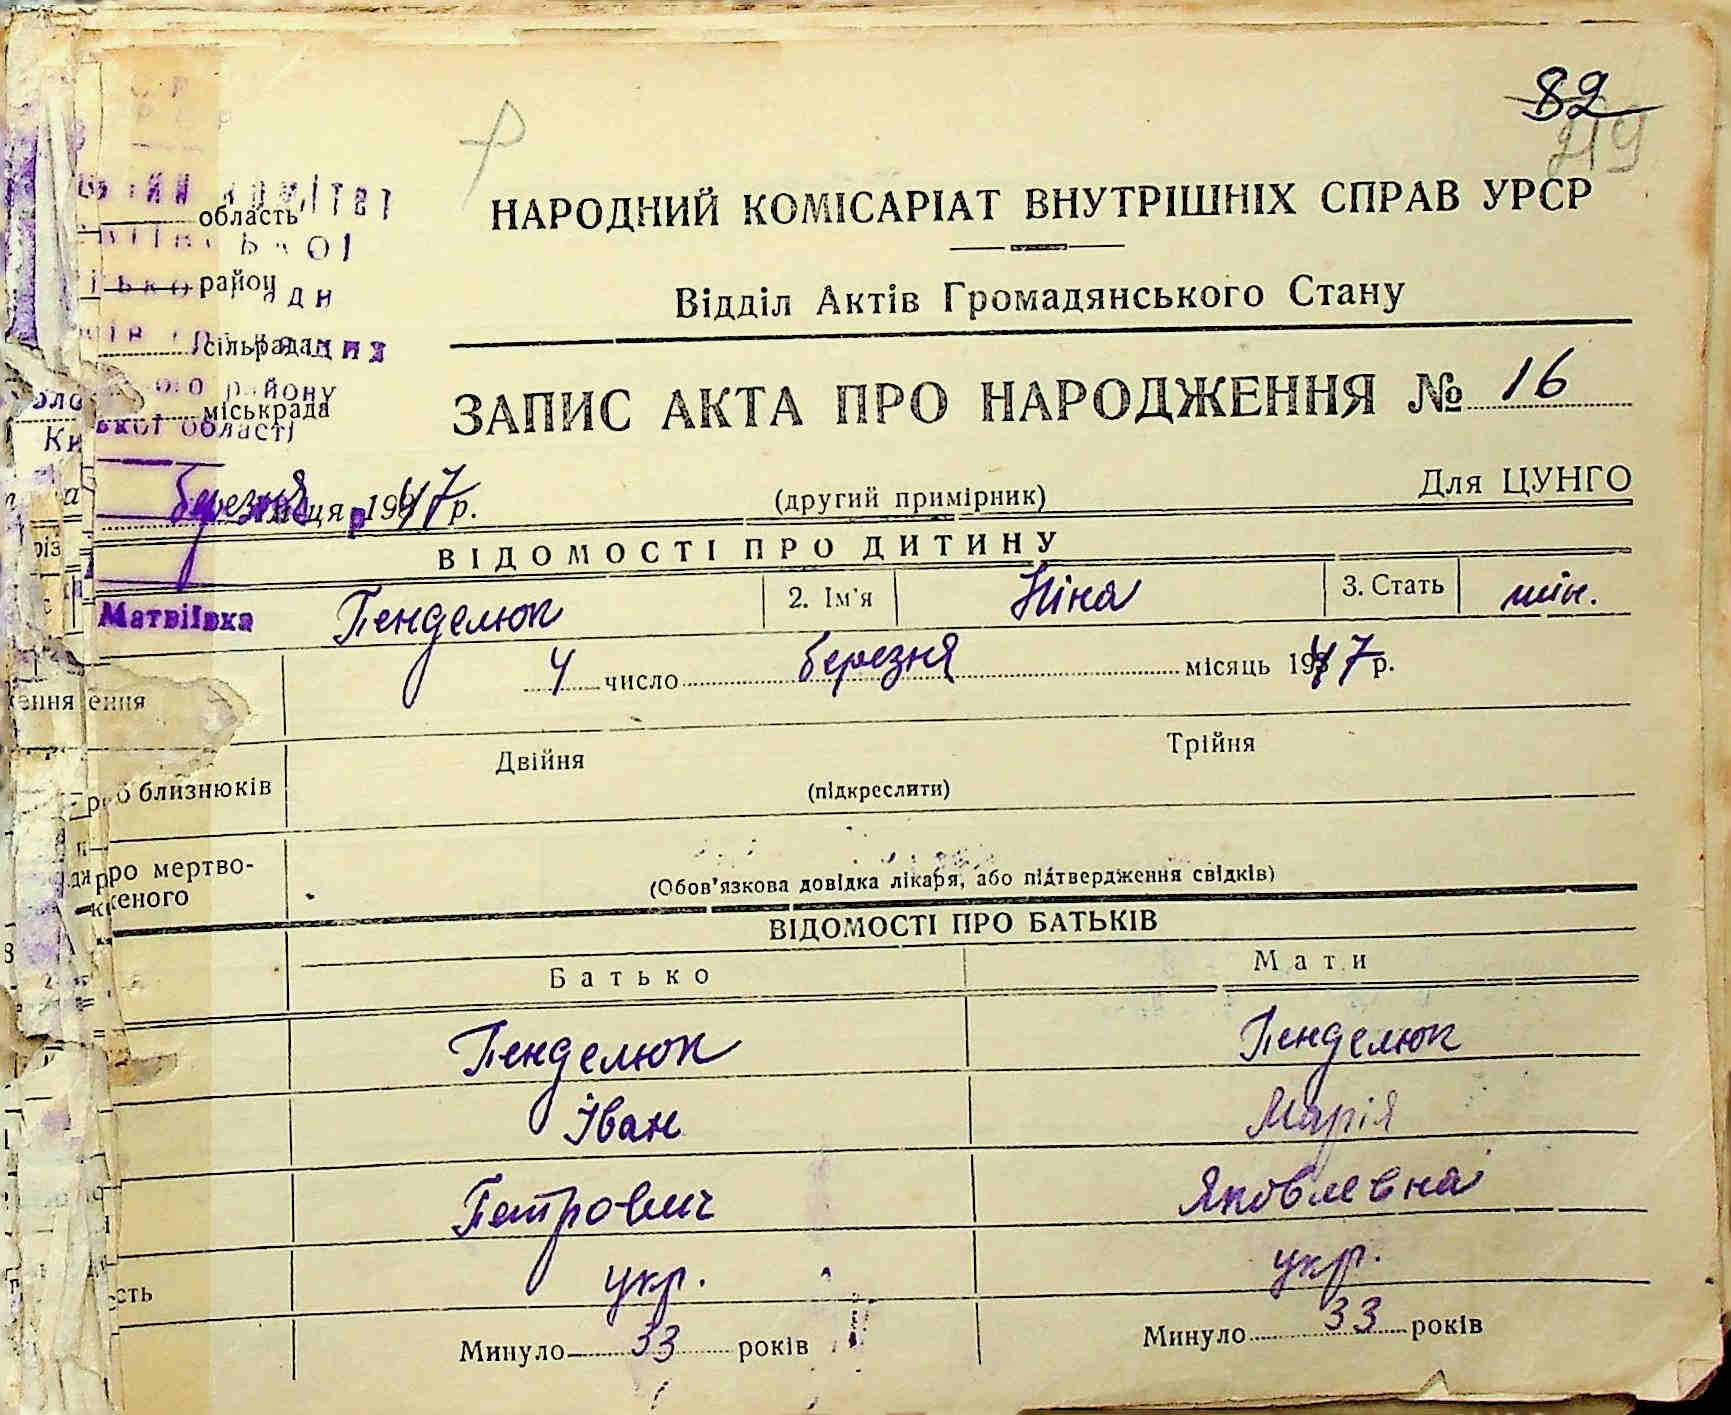 82
219
НАРОДНИЙ КОМІСАРІАТ ВНУТРІШНІХ СПРАВ УРСР
область
район
Відділ Актів Громадянського Стану
сільрада
району
міськрада
області
ЗАПИС АКТА ПРО НАРОДЖЕННЯ № 16
березня місяця 1947 р.
(другий примірник)
Для ЦУНГО
ВІДОМОСТІ ПРО ДИТИНУ
Матвіївка Пенделюк 2. Ім'я Ніна 3. Стать жін.
4 число березня місяць 1947 р.
Двійня Трійня
близнюків
(підкреслити)
про мертво-
женого
(Обов'язкова довідка лікаря, або підтвердження свідків)
ВІДОМОСТІ ПРО БАТЬКІВ
Батько Мати
Пенделюк Пенделюк
Іван Марія
Петрович Яковлевна
укр. укр.
Минуло 33 років Минуло 33 років